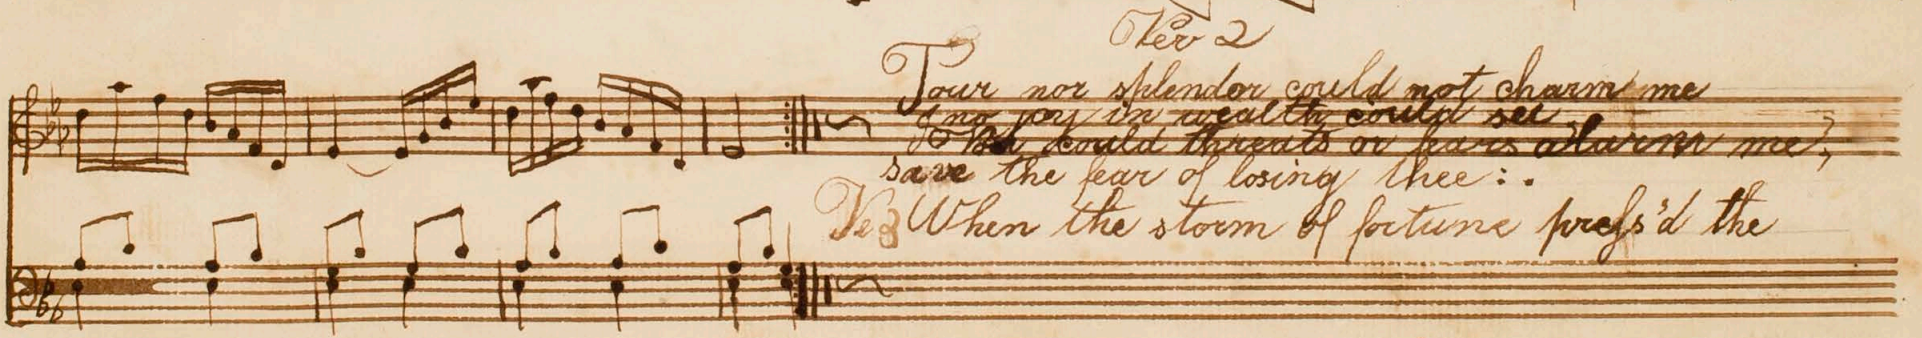 Ver 2
Tour nor splendor could not charm me
I no joy in wealth could see
could threats or fears alarm me,
save the fear of losing thee :.
Ve 3 When the storm of fortune press'd the